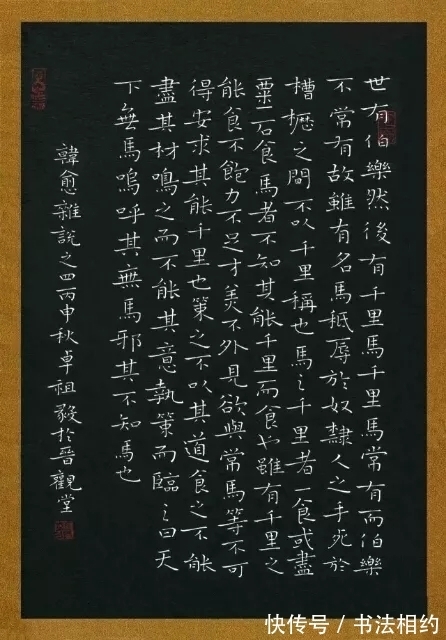 世有伯樂然後有千里馬千里馬常有而伯樂
不常有故雖有名馬秪辱於奴隸人之手死於
槽櫪之間不以千里稱也馬〻千里者一食或盡
粟一石食馬者不知其能千里而食也雖有千里之
能食不飽力不足才美不外見欲與常馬等不可
得安求其能千里也策之不以其道食之不能
盡其材鳴之而不能其意執策而臨〻曰天
下無馬嗚呼其無馬邪其不知馬也
韓愈雜說之四丙申秋卓祖毅於晉觀堂
快传号 / 书法相约